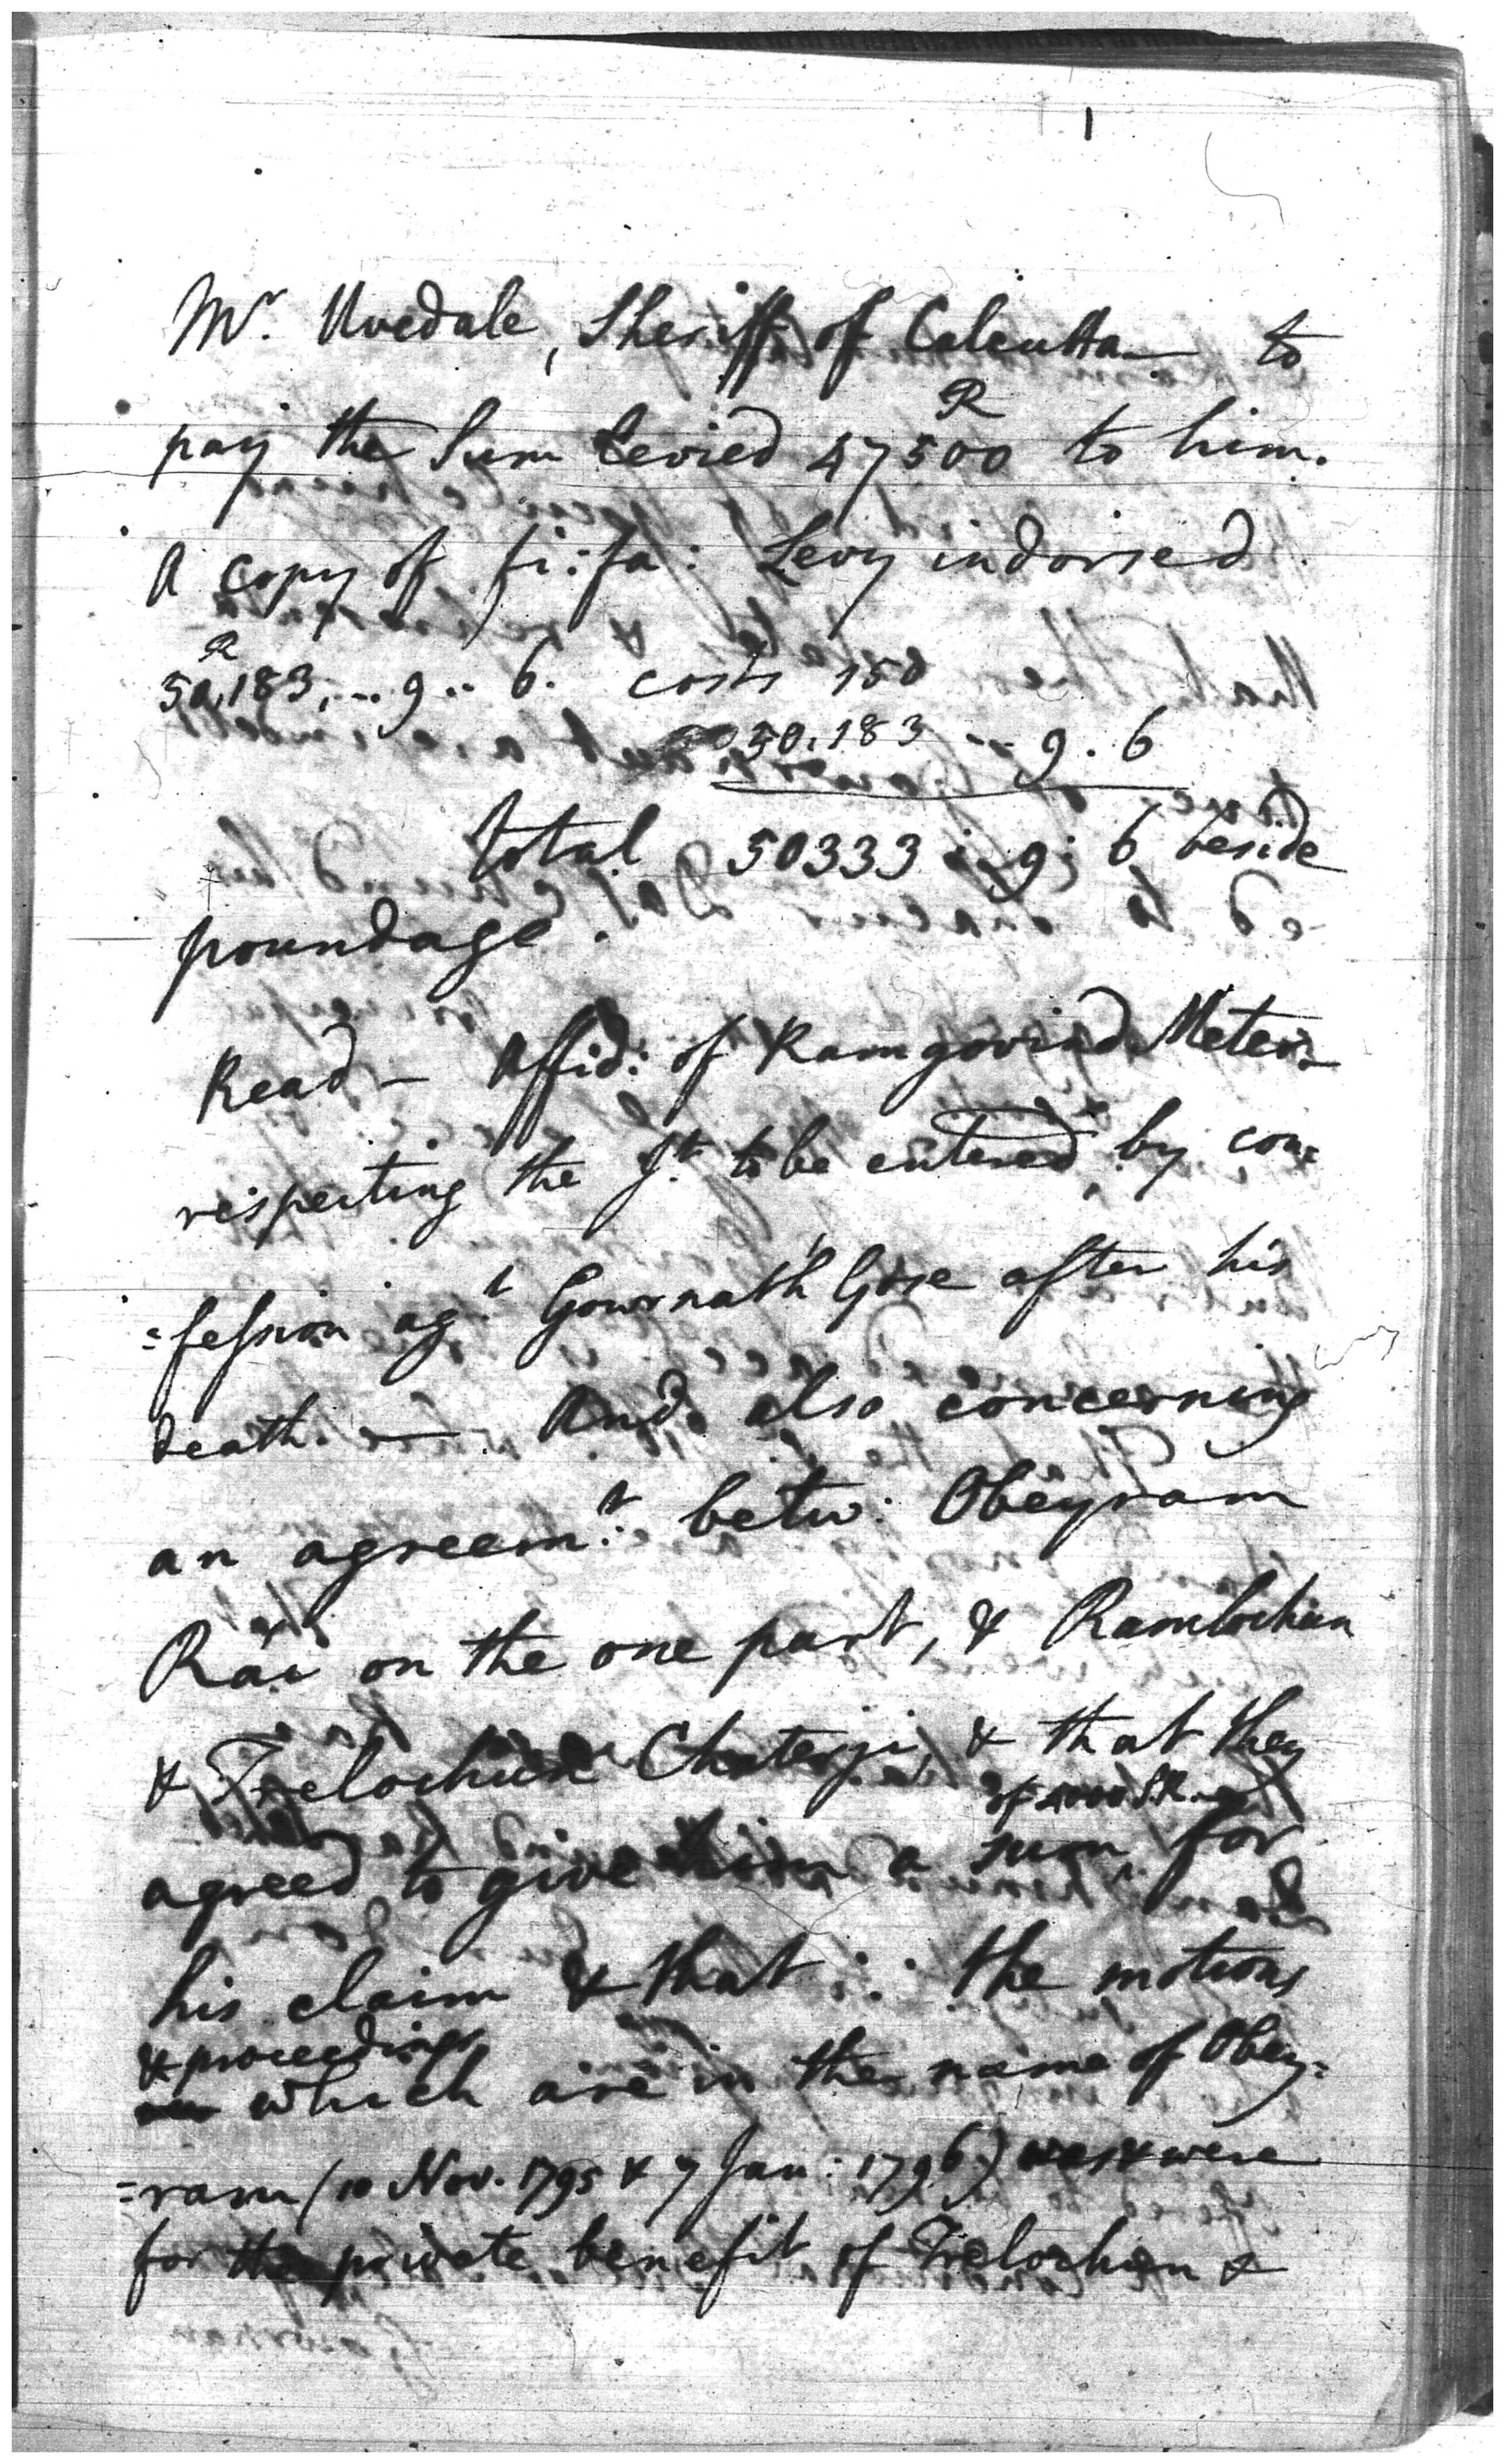 1
Mr. Uvedale, Sheriff of Calcutta to
R
pay the Sum levied 47500 to him.
A copy of fi: fa: Levy indorsed
R
50,183, .. 9 .. 6. costs 150
50,183 -- 9 . 6
total 50333 : 9 : 6 beside
poundage.
Read – Affid: of Ramgovind Meter
respecting the Jt. to be entered by con=
=fession agt. Gournath Gose after his
death. — And also concerning
an agreemt. betw: Obeyram
Rai on the one part, & Ramlochun
& Trelochun Chaterji, & that they
of 4000 S.R.
agreed to give him a sum for
his claim & that : : the motions
& proceedings
which are in the name of Obey=
=ram (10 Nov. 1795 & 7 Jan: 1796) were
for the private benefit of Trelochun &